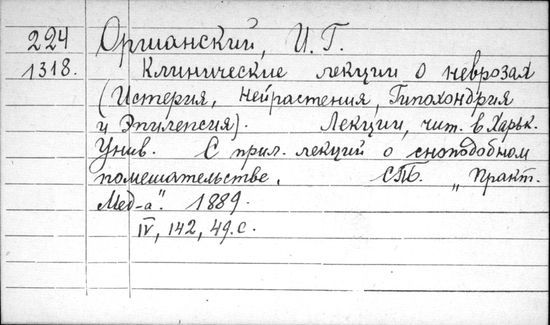 224 Оршанский, И. Г.
1318. Клинические лекции о неврозах
(Истерия, Нейрастения, Гипохондрия
и Эпилепсия). Лекции, чит. в Харьк.
Унив. С прил. лекций о сноподобном
помешательстве. СПб. „Практ.
Мед-а". 1889.
IV, 142, 49. с.